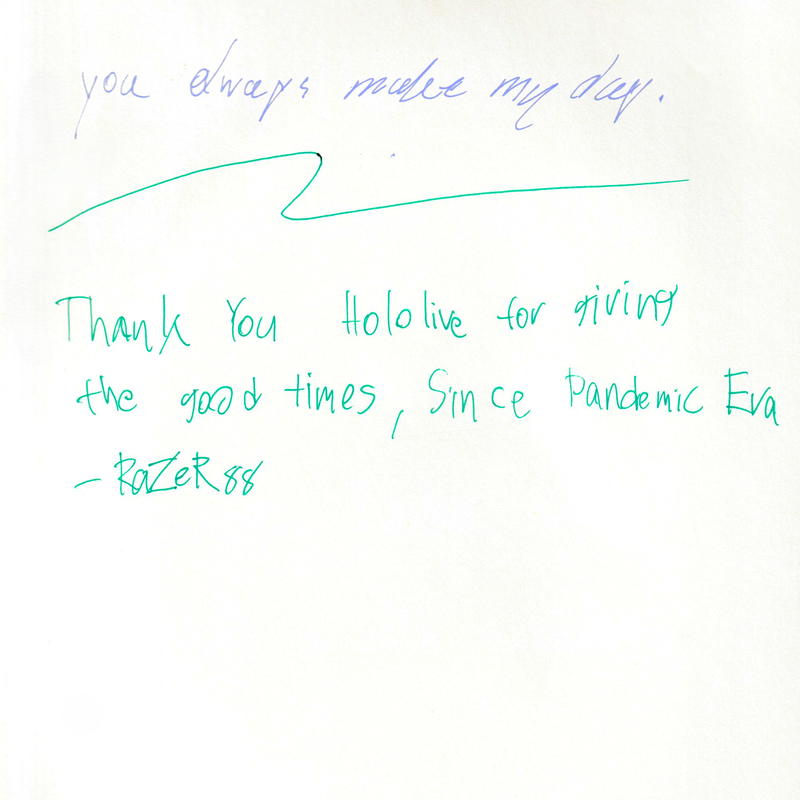 you always make my day.
Thank You Hololive for giving
the good times, Since Pandemic Era
- RaZeR88